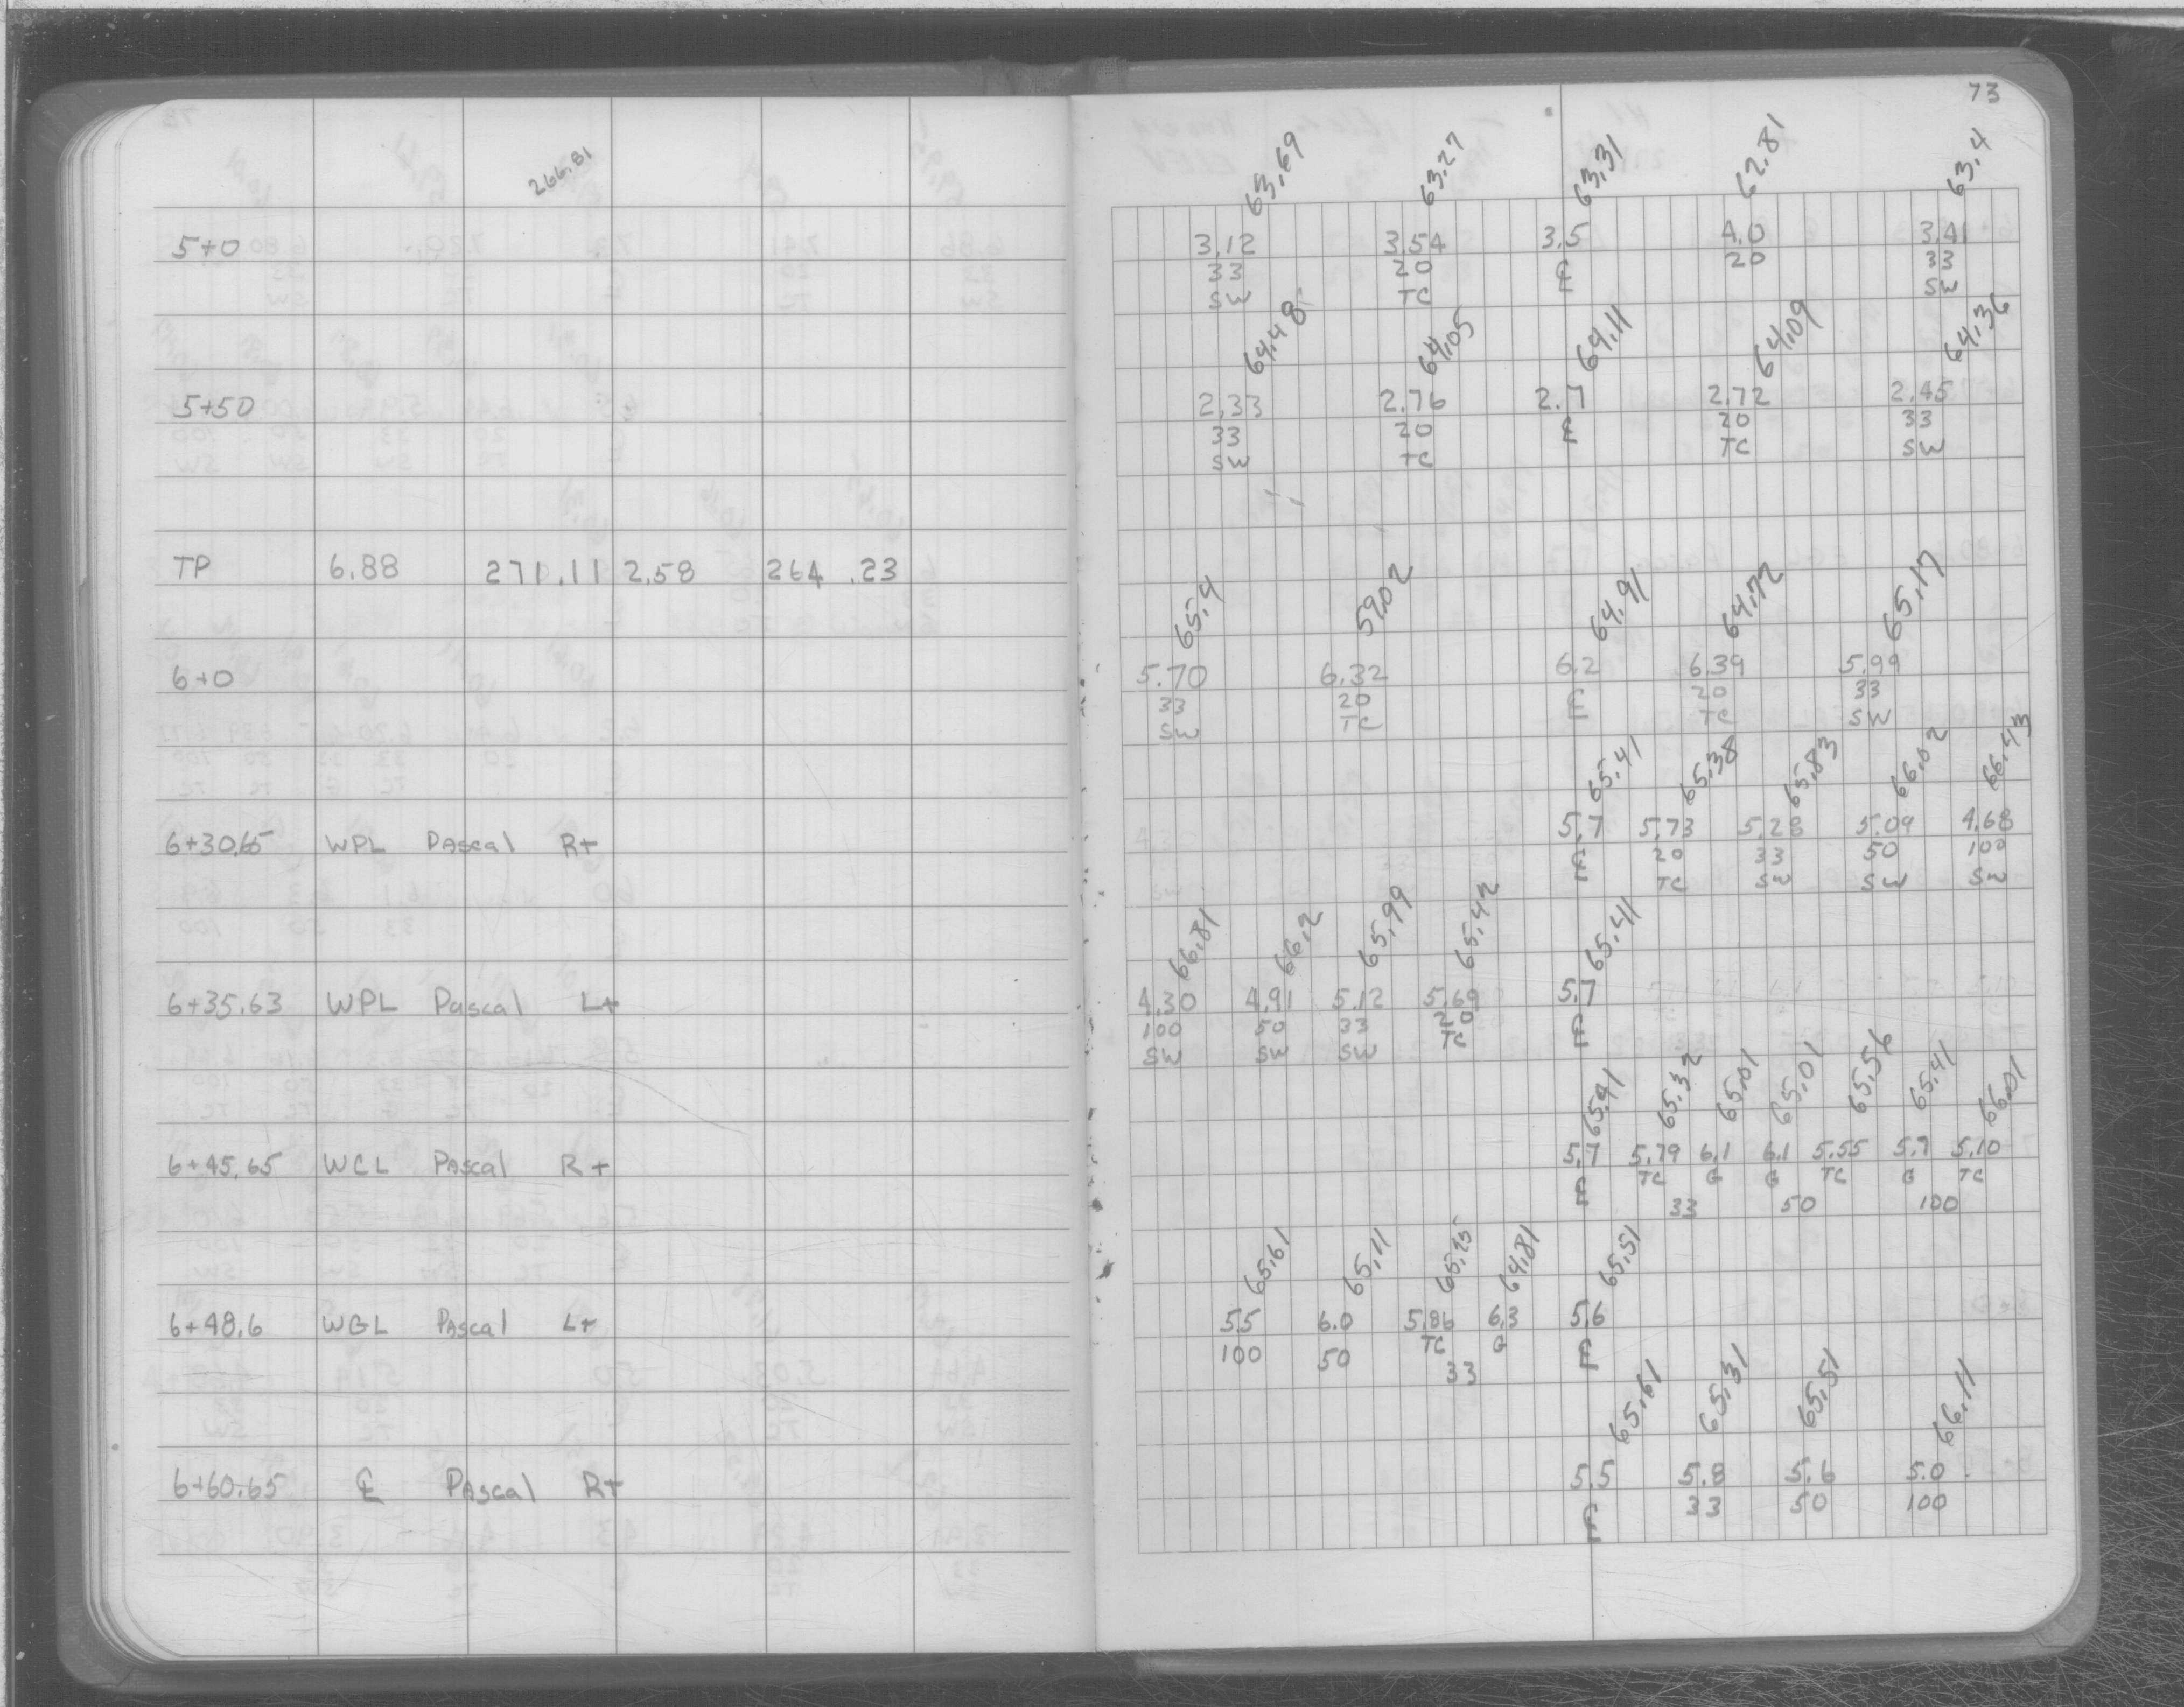 73
266.81
63.69 63.27 63.31 62.81 63.4
5+0 3.12 3.54 3.5 4.0 3.41
33 20 ℄ 20 33
SW TC SW
64.48 64.05 64.11 64.09 64.36
5+50 2.33 2.76 2.7 2.72 2.45
33 20 ℄ 20 33
SW TC TC SW
TP 6.88 271.11 2.58 264.23
65.4 59.02 64.91 64.72 65.17
6+0 5.70 6.32 6.2 6.39 5.99
33 20 ℄ 20 33
SW TC TC SW
65.41 65.38 65.83 66.02 66.43
6+30.65 WPL Pascal Rt 5.7 5.73 5.28 5.09 4.68
℄ 20 33 50 100
TC SW SW SW
66.81 66.2 65.99 65.42 65.41
6+35.63 WPL Pascal Lt 4.30 4.91 5.12 5.69 5.7
100 50 33 20 ℄
SW SW SW TC
65.41 65.32 65.01 65.01 65.56 65.41 66.01
6+45.65 WCL Pascal Rt 5.7 5.79 6.1 6.1 5.55 5.7 5.10
℄ TC G G TC G TC
33 50 100
65.61 65.11 65.25 64.81 65.51
6+48.6 WGL Pascal Lt 5.5 6.0 5.86 6.3 5.6
100 50 TC G ℄
33
65.61 65.31 65.51 66.11
6+60.65 ℄ Pascal Rt 5.5 5.8 5.6 5.0
℄ 33 50 100